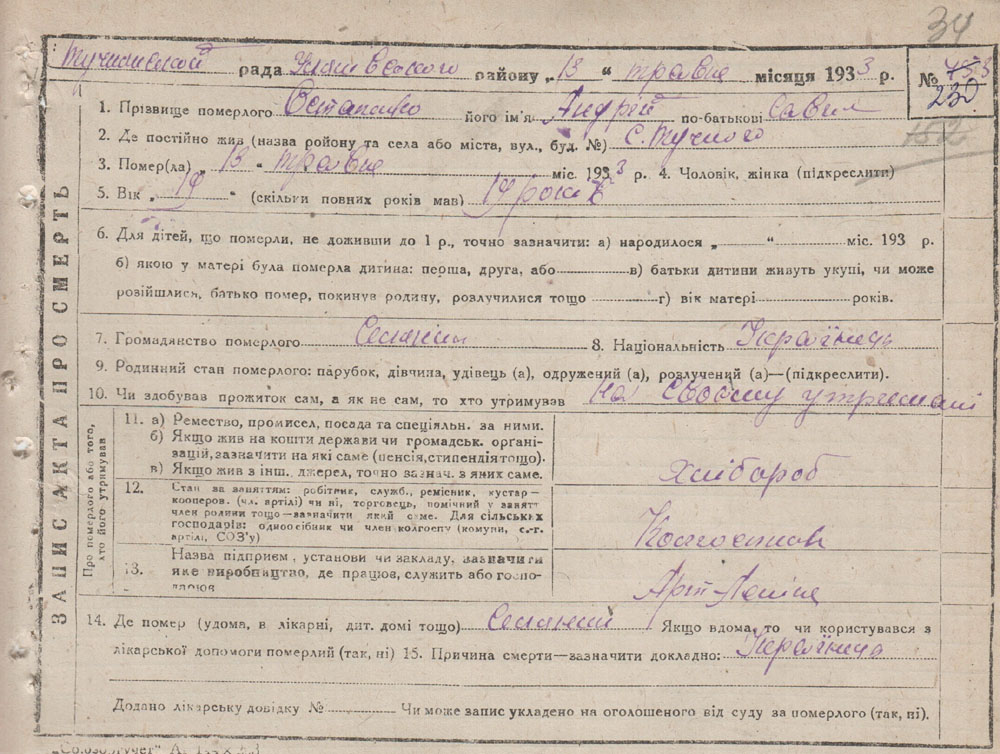 34
Тучинской рада Уланівського району „ 13 “ травня місяця 1933 р. № 753
230
152
1. Прізвище померлого Остапенко його ім'я Андрій по-батькові Савел
2. Де постійно жив (назва району та села або міста, вул., буд. №) С. Тучного
3. Помер(ла) „ 13 “ травня міс. 1933 р. 4. Чоловік, жінка (підкреслити)
5. Вік „ 19 “ (скільки повних років мав) 19 років
6. Для дітей, що померли, не доживши до 1 р., точно зазначити: а) народилося „ “ міс. 193 р.
б) якою у матері була померла дитина: перша, друга, або в) батьки дитини живуть укупі, чи може
розійшлись, батько помер, покинув родину, розлучилися тощо г) вік матері років.
7. Громадянство померлого Селянин 8. Національність Українець
9. Родинний стан померлого: парубок, дівчина, удівець (а), одружений (а), розлучений (а)—(підкреслити).
10. Чи здобував прожиток сам, а як не сам, то хто утримував на своєму утримані
11. а) Ремество, промисел, посада та спеціяльн. за ними.
б) Якщо жив на кошти держави чи громадськ. орґані-
зацій, зазначити на які саме (пенсія, стипендія тощо).
в) Якщо жив з інш. джерел, точно зазнач. з яких саме.
хлібороб
12. Стан за заняттям: робітник, служб., ремісник, кустар—
кооперов. (чл. артілі) чи ні, торговець, помічний у занятт
член родини тощо—зазначити який саме. Для сільських
господарів: одноосібник чи член колгоспу (комуни, с.-г.
артілі, СОЗ'у)
Колгоспник
13. Назва підприєм, установи чи закладу, зазначити
яке виробництво, де працюв, служить або госпо-
дарював
Арт Леніна
14. Де помер (удома, в лікарні, дит. домі тощо) Селянин Якщо вдома, то чи користувався з
лікарської допомоги померлий (так, ні) 15. Причина смерти—зазначити докладно: Українець
Додано лікарську довідку № Чи може запис укладено на оголошеного від суду за померлого (так, ні).
ЗАПИС АКТА ПРО СМЕРТЬ
Про померлого або того,
хто його утримував